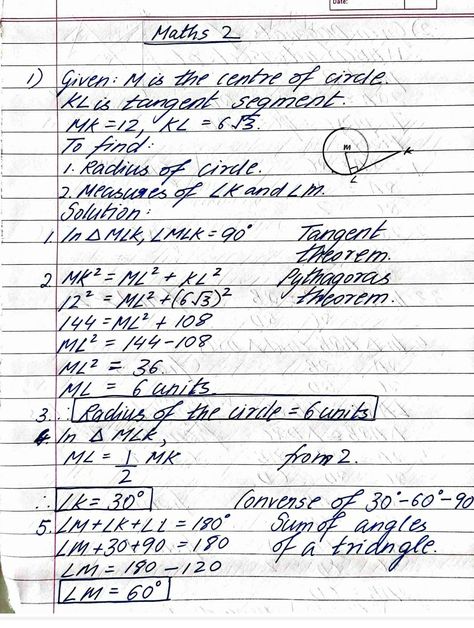 Date:
Maths 2
1) Given: M is the centre of circle.
KL is tangent segment.
MK = 12, KL = 6√3.
To find:
1. Radius of circle.
2. Measures of ∠K and ∠M.
Solution:
M
K
L
1. In △MLK, ∠MLK = 90° Tangent theorem.
2 MK² = ML² + KL² Pythagoras theorem.
12² = ML² + (6√3)²
144 = ML² + 108
ML² = 144 - 108
ML² = 36.
ML = 6 units.
3. ∴ Radius of the circle = 6 units
4. In △ MLK,
ML = 1/2 MK from 2.
∴ ∠K = 30° Converse of 30°-60°-90
5. ∠M + ∠K + ∠L = 180° Sum of angles of a triangle.
∠M + 30 + 90 = 180
∠M = 180 - 120
∠M = 60°